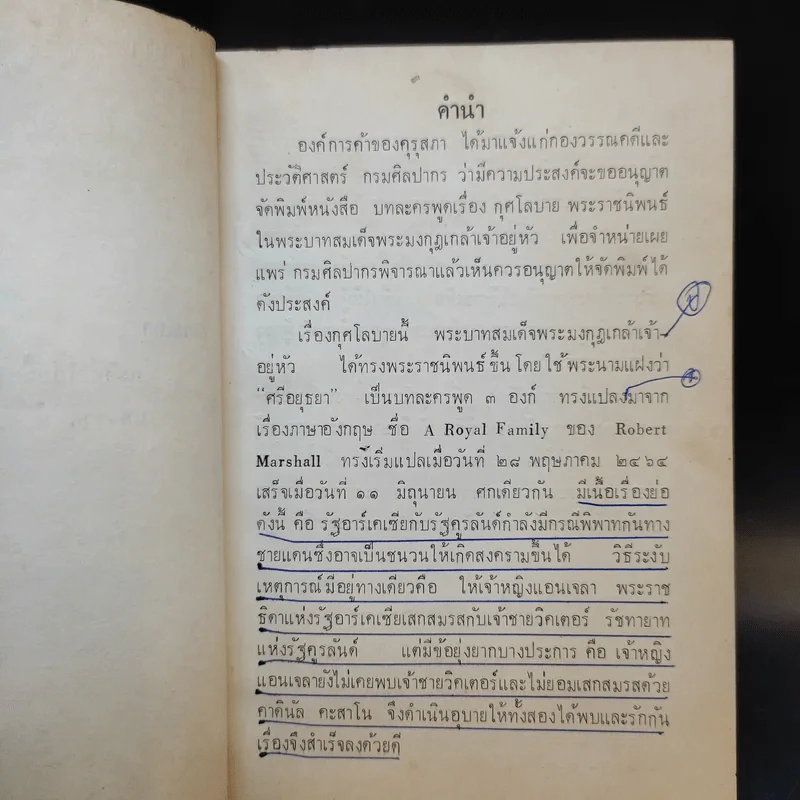 คำนำ
องค์การค้าของคุรุสภา ได้มาแจ้งแก่กองวรรณคดีและ
ประวัติศาสตร์ กรมศิลปากร ว่ามีความประสงค์จะขออนุญาต
จัดพิมพ์หนังสือ บทละครพูดเรื่อง กุศโลบาย พระราชนิพนธ์
ในพระบาทสมเด็จพระมงกุฎเกล้าเจ้าอยู่หัว เพื่อจำหน่ายเผย
แพร่ กรมศิลปากรพิจารณาแล้วเห็นควรอนุญาตให้จัดพิมพ์ได้
ดังประสงค์
เรื่องกุศโลบายนี้ พระบาทสมเด็จพระมงกุฎเกล้าเจ้า
อยู่หัว ได้ทรงพระราชนิพนธ์ขึ้น โดยใช้พระนามแฝงว่า
“ศรีอยุธยา” เป็นบทละครพูด ๓ องก์ ทรงแปลงมาจาก
เรื่องภาษาอังกฤษ ชื่อ A Royal Family ของ Robert
Marshall ทรงเริ่มแปลเมื่อวันที่ ๒๘ พฤษภาคม ๒๔๖๔
เสร็จเมื่อวันที่ ๑๑ มิถุนายน ศกเดียวกัน มีเนื้อเรื่องย่อ
ดังนี้ คือ รัฐอาร์เคเซียกับรัฐคูรลันด์กำลังมีกรณีพิพาทกันทาง
ชายแดนซึ่งอาจเป็นชนวนให้เกิดสงครามขึ้นได้ วิธีระงับ
เหตุการณ์มีอยู่ทางเดียวคือ ให้เจ้าหญิงแอนเจลา พระราช
ธิดาแห่งรัฐอาร์เคเซียเสกสมรสกับเจ้าชายวิคเตอร์ รัชทายาท
แห่งรัฐคูรลันด์ แต่มีข้อยุ่งยากบางประการ คือ เจ้าหญิง
แอนเจลายังไม่เคยพบเจ้าชายวิคเตอร์และไม่ยอมเสกสมรสด้วย
คาดินัล คะสาโน จึงดำเนินอุบายให้ทั้งสองได้พบและรักกัน
เรื่องจึงสำเร็จลงด้วยดี